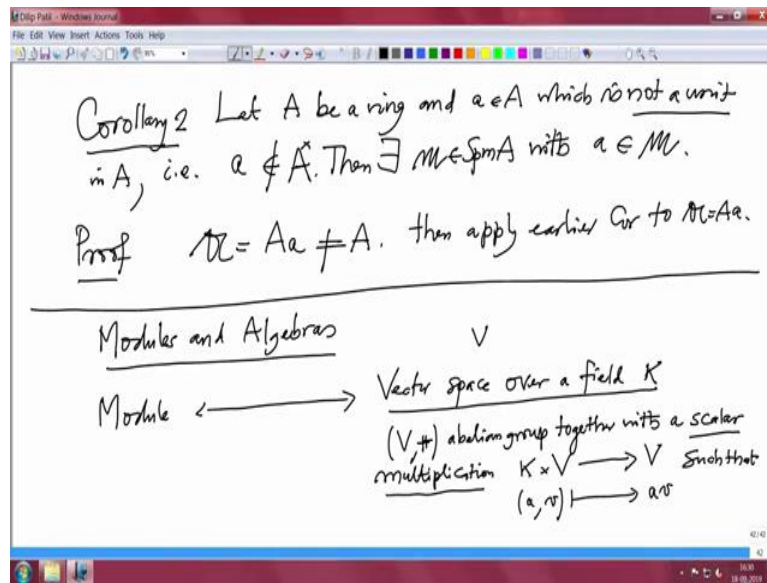 Dilip Patil - Windows Journal
File Edit View Insert Actions Tools Help
Corollary 2 Let A be a ring and a ∈ A which is not a unit
in A, i.e. a ∉ A^×. Then ∃ 𝔪 ∈ Spm A with a ∈ 𝔪.
Proof 𝔄 = Aa ≠ A. then apply earlier Cor to 𝔄 = Aa.
Modules and Algebras V
Module ⟷ Vector space over a field K
(V, +) abelian group together with a scalar
multiplication K × V ⟶ V such that
(a, v) ⟼ av
42/42
42
16:30
18-09-2019